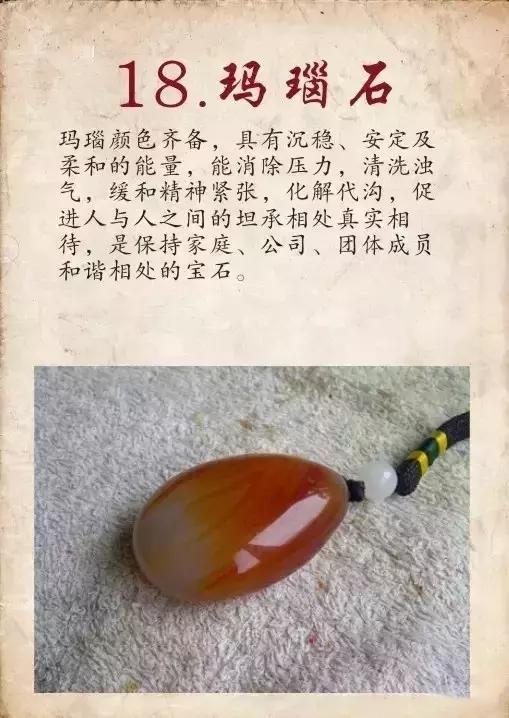 18.玛瑙石
玛瑙颜色齐备，具有沉稳、安定及
柔和的能量，能消除压力，清洗浊
气，缓和精神紧张，化解代沟，促
进人与人之间的坦承相处真实相
待，是保持家庭、公司、团体成员
和谐相处的宝石。